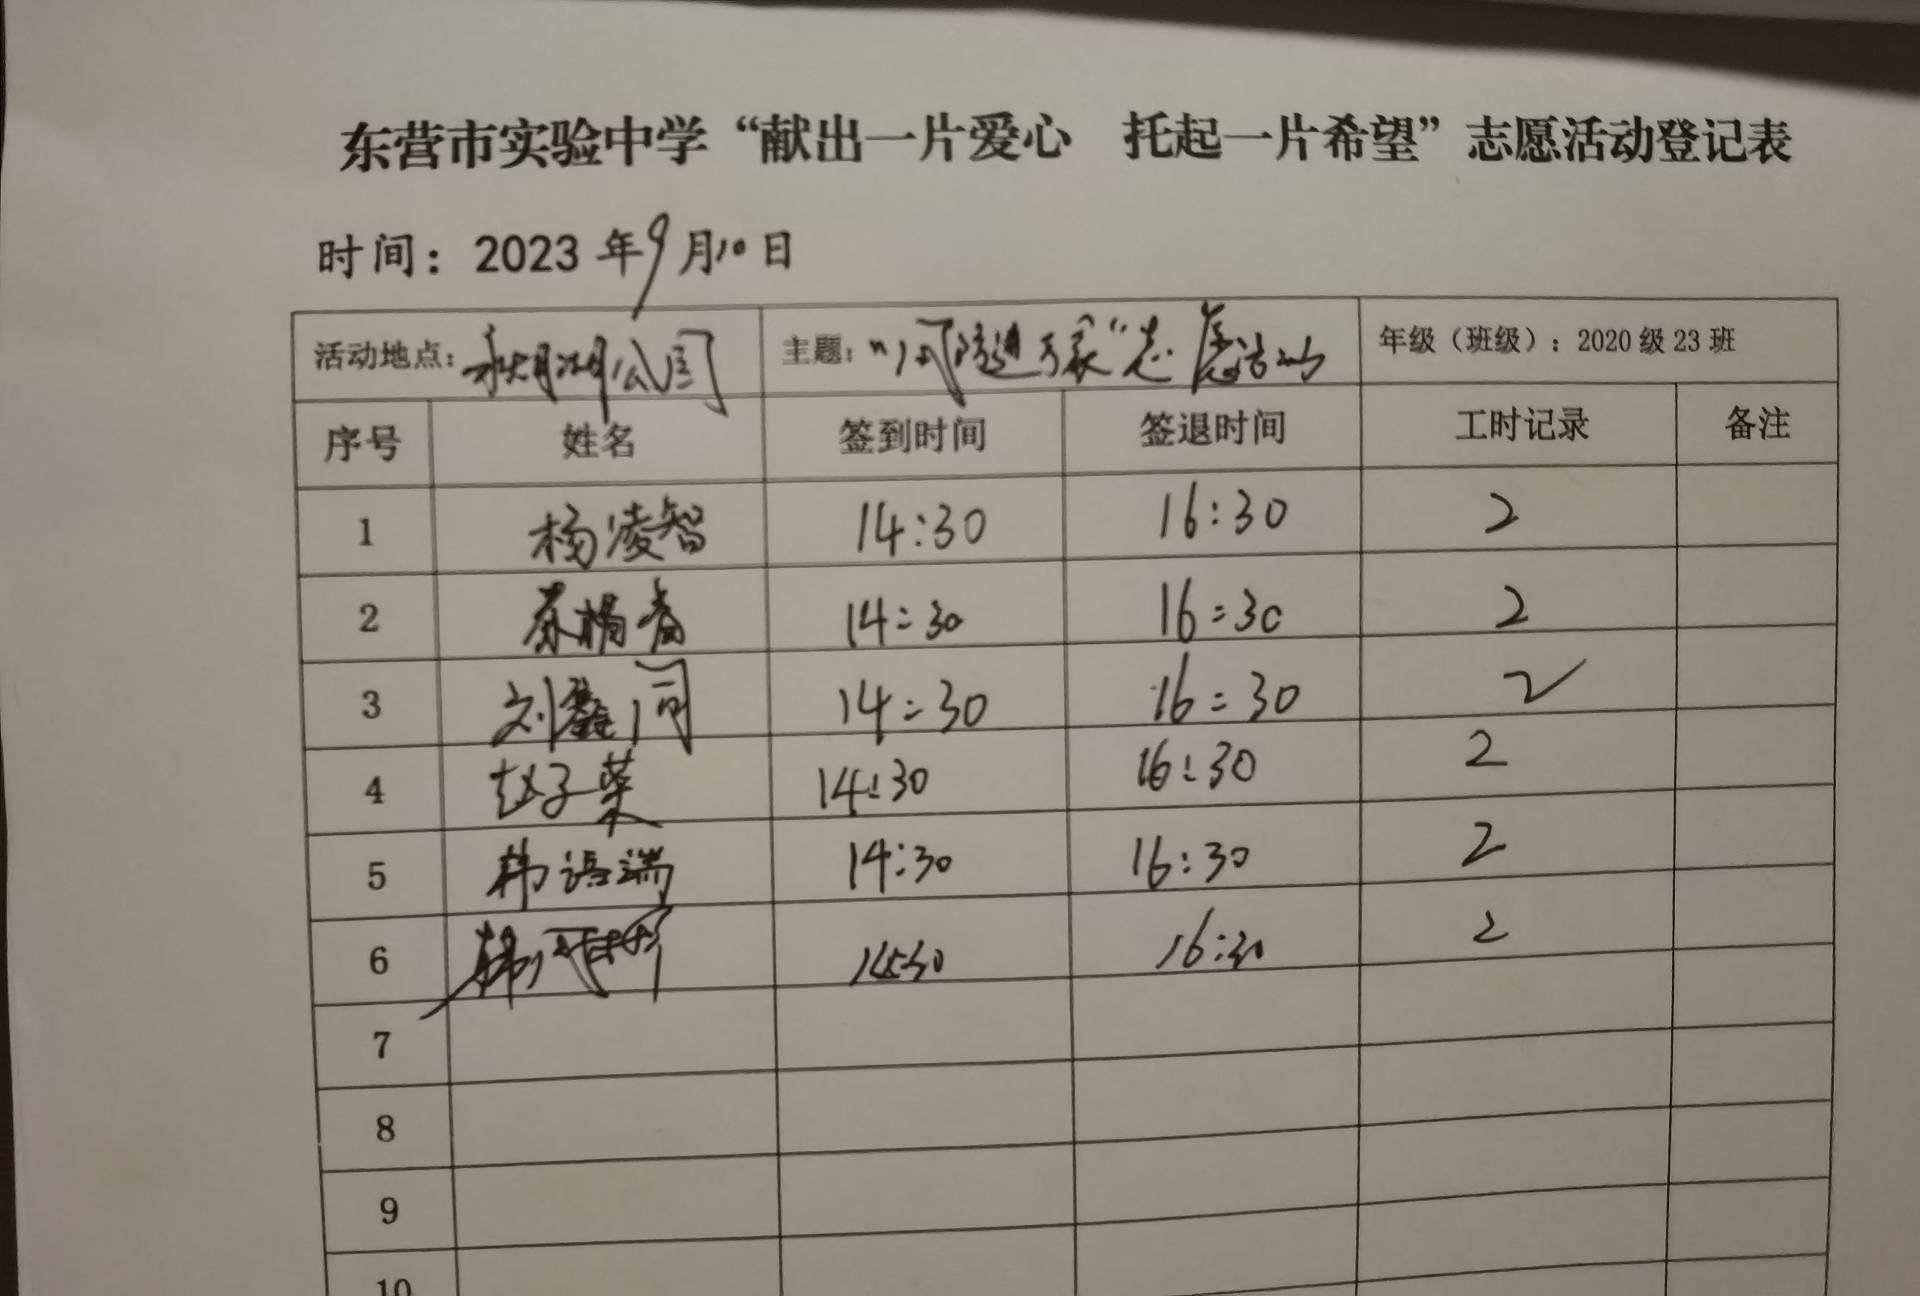 东营市实验中学“献出一片爱心 托起一片希望”志愿活动登记表
时间：2023年9月10日
活动地点：明湖公园 主题：“ 进万家”志愿活动 年级（班级）：2020级23班
序号 姓名 签到时间 签退时间 工时记录 备注
1 杨凌智 14:30 16:30 2
2 14:30 16:30 2
3 刘鑫同 14:30 16:30 2
4 赵子荣 14:30 16:30 2
5 韩语端 14:30 16:30 2
6 韩 14:30 16:30 2
7
8
9
10